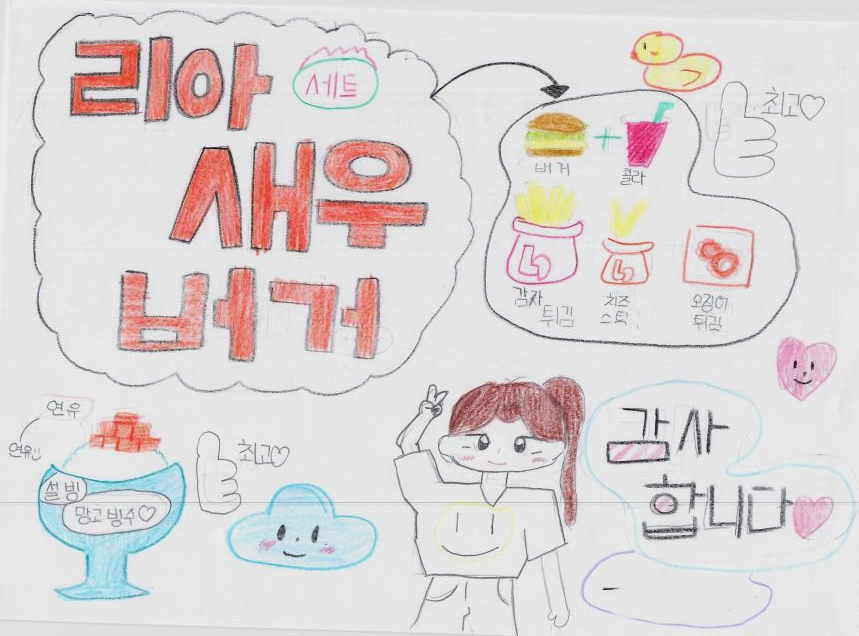 리아 세트
새우
버거
최고♡
버거
콜라
감자
튀김
치즈
스틱
오징어
튀김
연유
연유
설빙
망고빙수♡
최고♡
감사
합니다